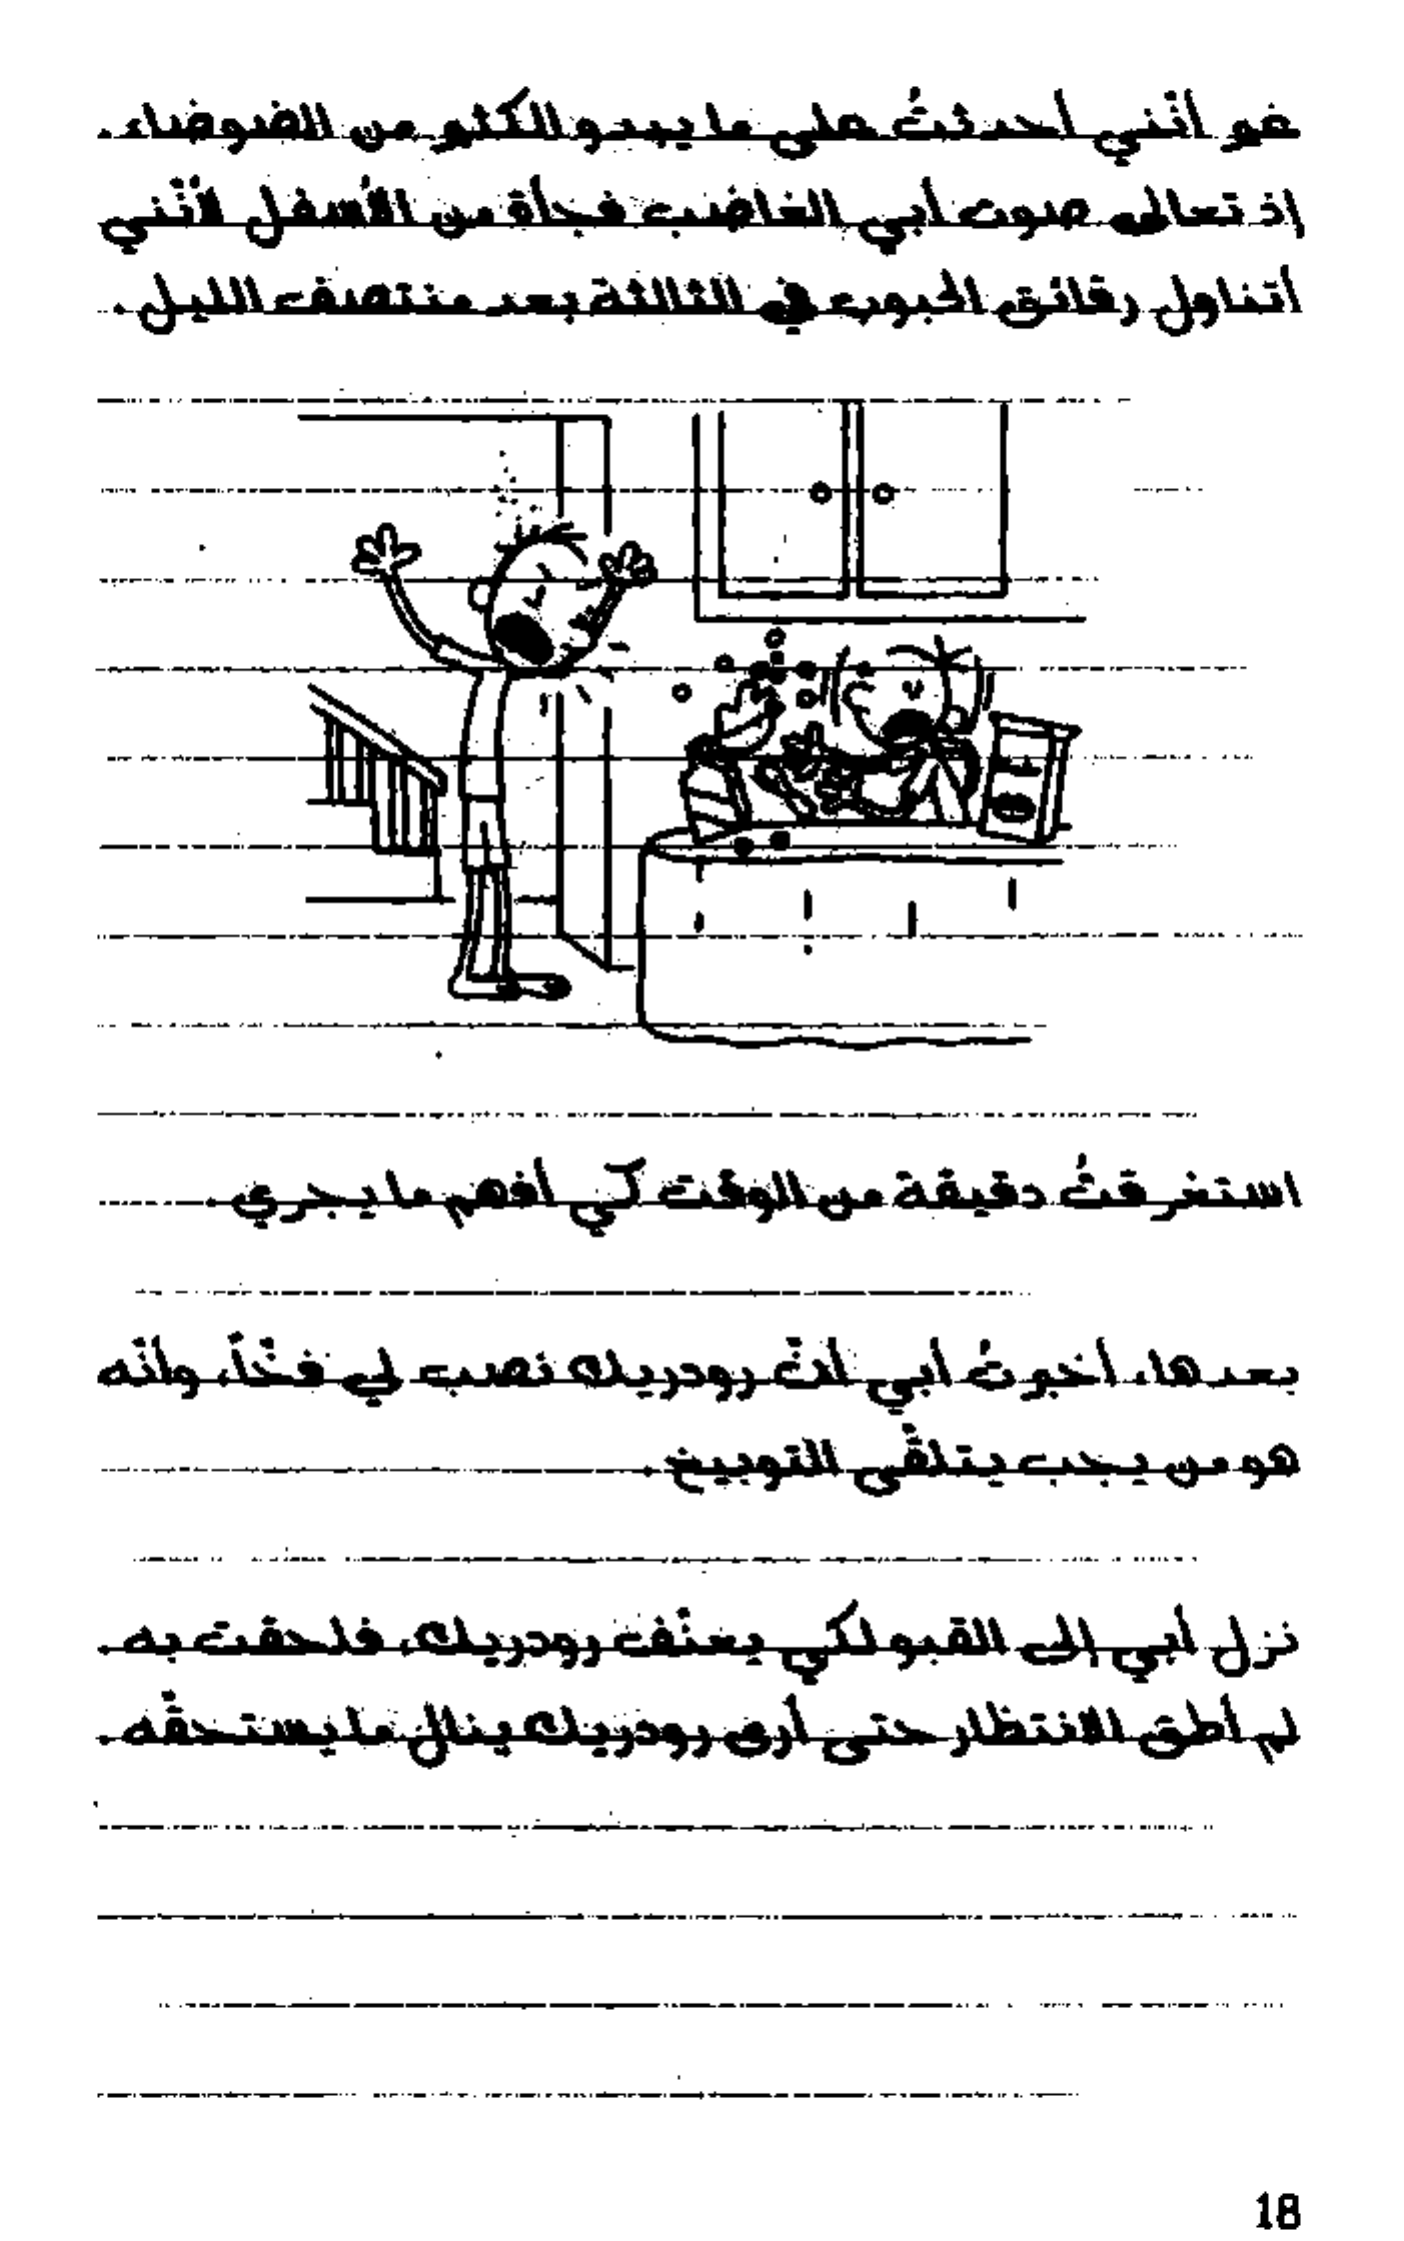 غير أنّني أحدثتُ على ما يبدو الكثير من الضوضاء.
إذ تعالى صوت أبي الغاضب فجأة من الأسفل لأنّني
أتناول رقائق الحبوب في الثالثة بعد منتصف الليل.
استغرقتُ دقيقة من الوقت كي أفهم ما يجري.
بعدها، أخبرتُ أبي أنّ رودريك نصب لي فخّاً، وأنّه
هو من يجب يتلقّى التوبيخ.
نزل أبي إلى القبو لكي يعنّف رودريك، فلحقت به.
لم أطق الانتظار حتى أرى رودريك ينال ما يستحقّه.
18